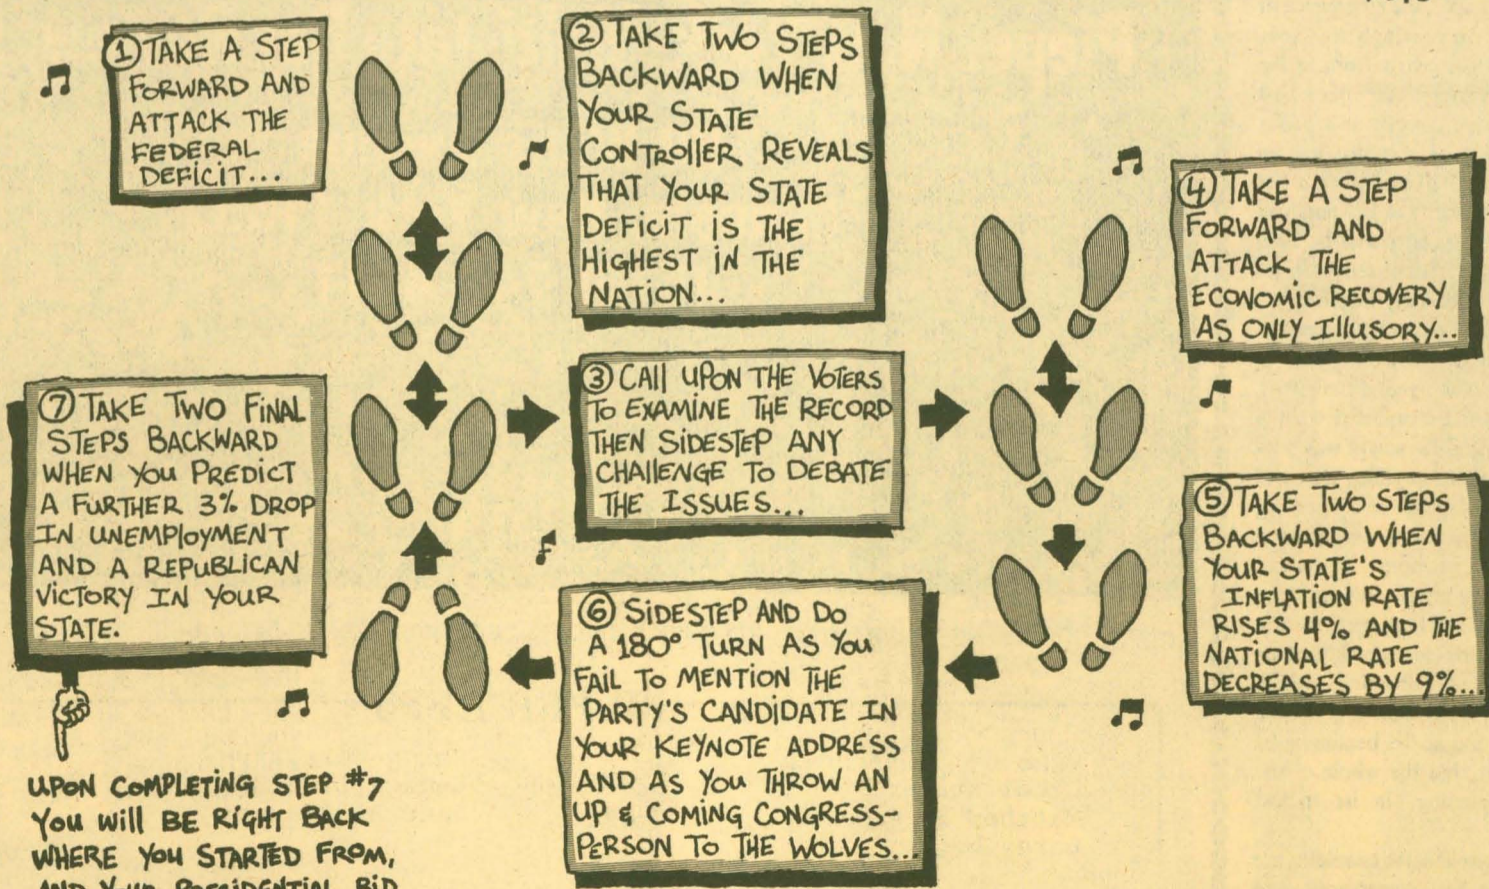 ① TAKE A STEP
FORWARD AND
ATTACK THE
FEDERAL
DEFICIT...
② TAKE TWO STEPS
BACKWARD WHEN
YOUR STATE
CONTROLLER REVEALS
THAT YOUR STATE
DEFICIT IS THE
HIGHEST IN THE
NATION...
③ CALL UPON THE VOTERS
TO EXAMINE THE RECORD
THEN SIDESTEP ANY
CHALLENGE TO DEBATE
THE ISSUES...
④ TAKE A STEP
FORWARD AND
ATTACK THE
ECONOMIC RECOVERY
AS ONLY ILLUSORY...
⑤ TAKE TWO STEPS
BACKWARD WHEN
YOUR STATE'S
INFLATION RATE
RISES 4% AND THE
NATIONAL RATE
DECREASES BY 9%...
⑥ SIDESTEP AND DO
A 180° TURN AS YOU
FAIL TO MENTION THE
PARTY'S CANDIDATE IN
YOUR KEYNOTE ADDRESS
AND AS YOU THROW AN
UP & COMING CONGRESS-
PERSON TO THE WOLVES...
⑦ TAKE TWO FINAL
STEPS BACKWARD
WHEN YOU PREDICT
A FURTHER 3% DROP
IN UNEMPLOYMENT
AND A REPUBLICAN
VICTORY IN YOUR
STATE.
UPON COMPLETING STEP #7
YOU WILL BE RIGHT BACK
WHERE YOU STARTED FROM,
AND YOUR PRESIDENTIAL BID